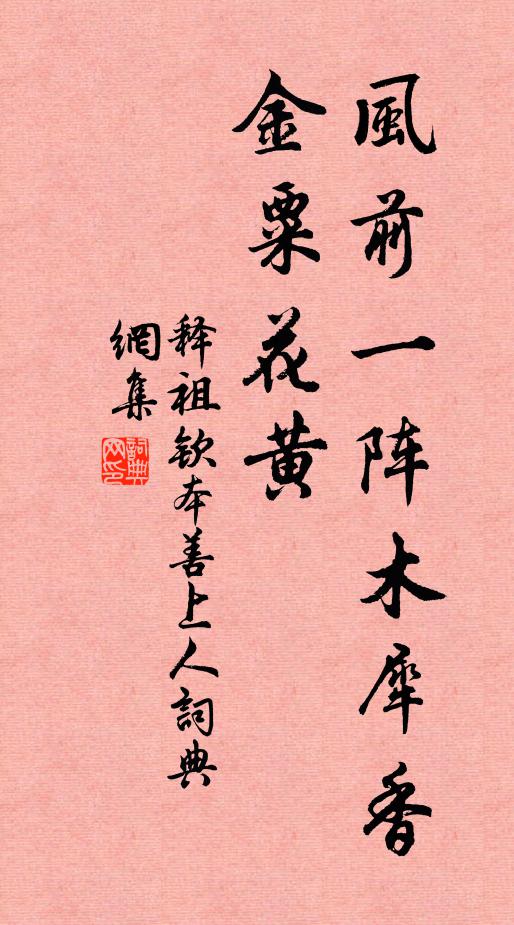 風前一阵木犀香
金粟花黄
释祖钦本善上人詞典
網集
詞典网印